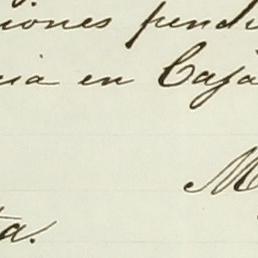 iones pendi
cia en Caja
M
ta.